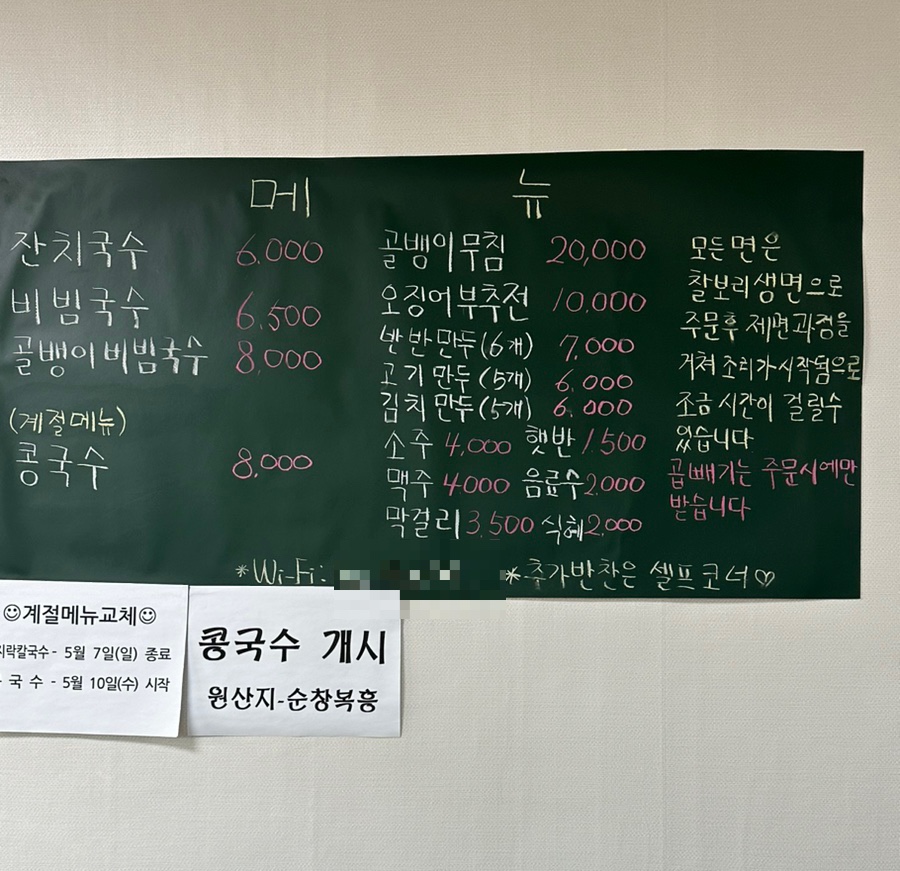 메 뉴
잔치국수 6,000
비빔국수 6,500
골뱅이비빔국수 8,000
(계절메뉴)
콩국수 8,000
골뱅이무침 20,000
오징어부추전 10,000
반반만두(6개) 7,000
고기만두(5개) 6,000
김치만두(5개) 6,000
소주 4,000 햇반 1,500
맥주 4,000 음료수 2,000
막걸리 3,500 식혜 2,000
모든면은
찰보리생면으로
주문후 제면과정을
거쳐 조리가시작됨으로
조금 시간이 걸릴수
있습니다
곱빼기는 주문시에만
받습니다
*Wi-Fi:
*추가반찬은 셀프코너♡
☺계절메뉴교체☺
지락칼국수- 5월 7일(일) 종료
국 수 - 5월 10일(수) 시작
콩국수 개시
원산지-순창복흥